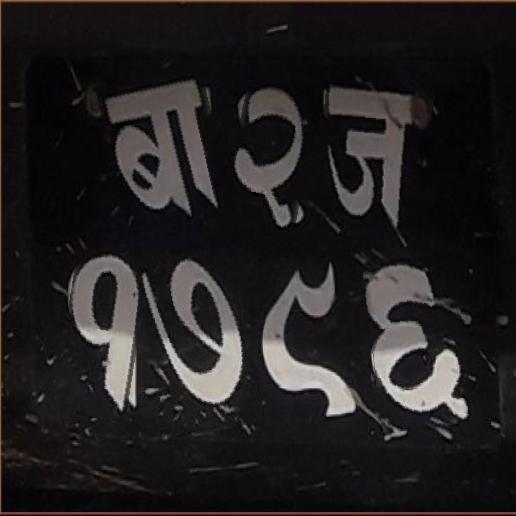 बा२ज
१७८६